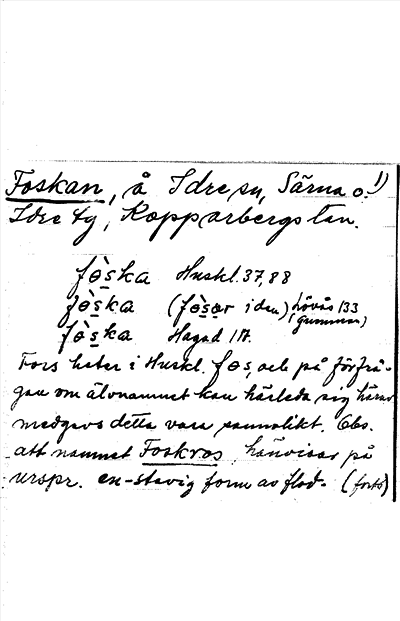 Foskan, å Idre sn, Särna o. 1)
Idre tg, Kopparbergs län.
fө̀s̲ka Huskl. 37,88
fө̀s̲ka (fө̀s̲ər i den) Lövås 133 (Gumman)
fө̀s̲ka Hagad 117.
Fors heter i Huskl. fөs, och på förfrå-
gan om älvnamnet kan härleda sig härav
medgavs detta vara sannolikt. Obs.
att namnet Foskros hänvisar på
urspr. en-stavig form av flod- (forts)